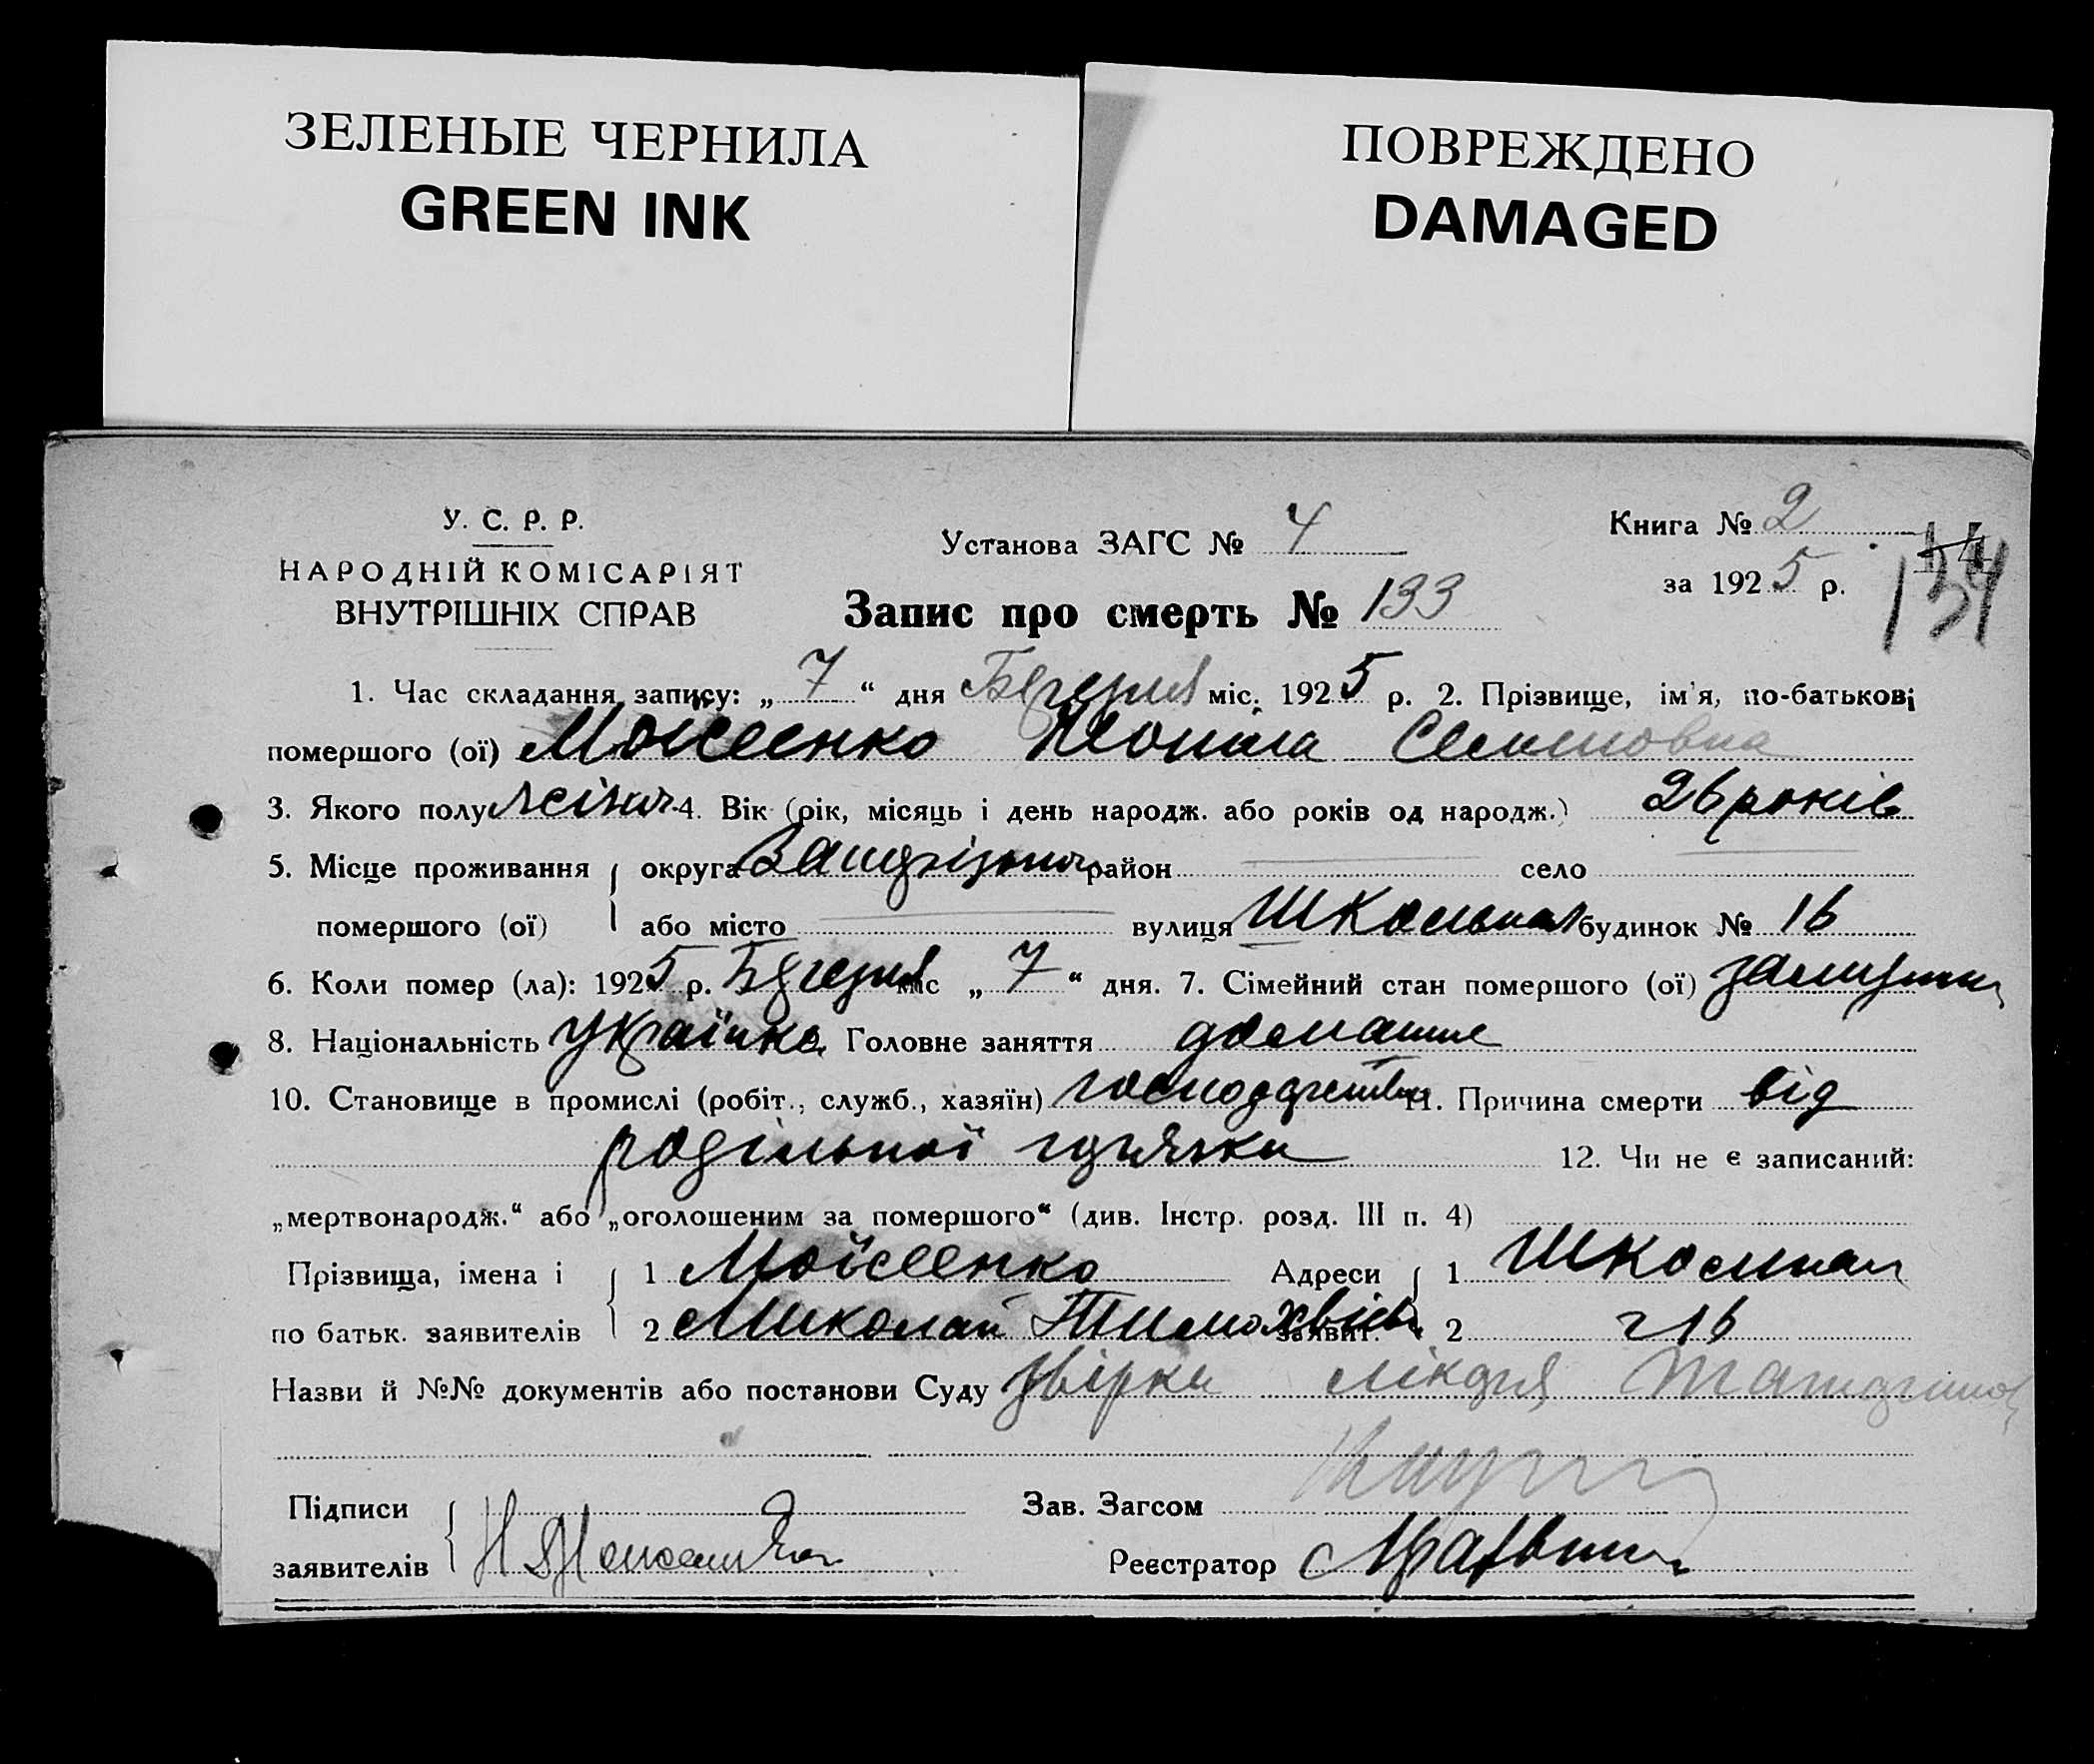 ЗЕЛЕНЫЕ ЧЕРНИЛА
GREEN INK
ПОВРЕЖДЕНО
DAMAGED
У. С. Р. Р.
НАРОДНІЙ КОМІСАРІЯТ
ВНУТРІШНІХ СПРАВ
Установа ЗАГС № 4
Книга № 2
за 1925 р.
134
Запис про смерть № 133
1. Час складання запису: „ 7 “ дня міс. 1925 р. 2. Прізвище, ім'я, по-батькові
помершого (ої) Моісеенко Семеновна
3. Якого полу жіноч. 4. Вік (рік, місяць і день народж. або років од народж.) 26 років
5. Місце проживання округа район село
помершого (ої) або місто вулиця Школьная будинок № 16
6. Коли помер (ла): 1925 р. міс „ 7 “ дня. 7. Сімейний стан помершого (ої) замужня
8. Національність українка Головне заняття домашне
10. Становище в промислі (робіт., служб., хазяїн) господарство 11. Причина смерти від
родільної горячки 12. Чи не є записаний:
„мертвонародж.“ або „оголошеним за помершого“ (див. Інстр. розд. III п. 4)
Прізвища, імена і 1 Моісеенко Адреси 1 Школьная
по батьк. заявителів 2 Миколай Тимохвієв заявит. 2 16
Назви й №№ документів або постанови Суду лікаря
Підписи Зав. Загсом
заявителів Реєстратор